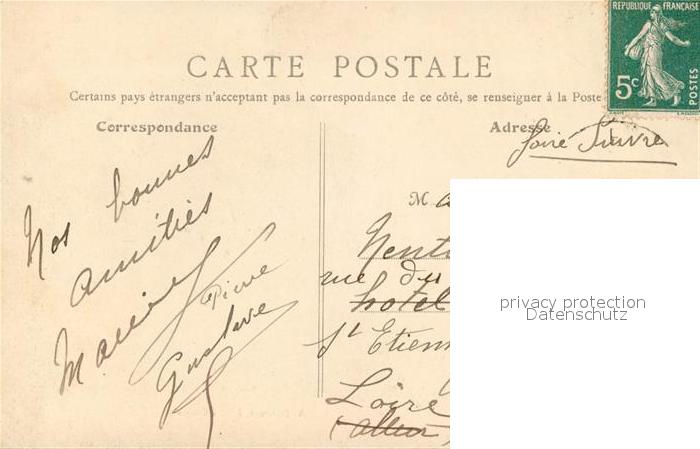 RÉPUBLIQUE FRANÇAISE
5c
POSTES
CARTE POSTALE
Certains pays étrangers n'acceptant pas la correspondance de ce côté, se renseigner à la Poste
Correspondance
Adresse
faire Suivre
Nos bonnes
amitiés
Pierre
Gustave
M
rue du
hotel
St Etienn
Loire
privacy protection
Datenschutz